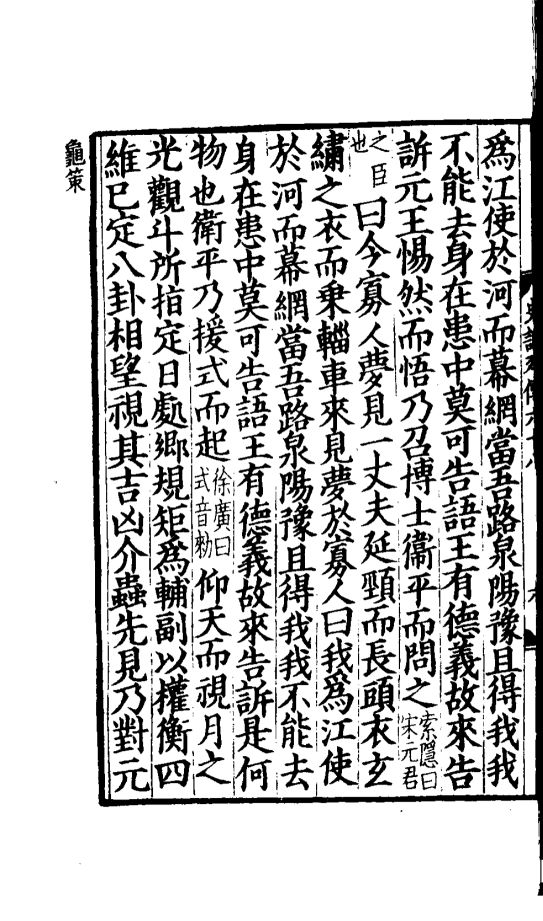 爲江使於河而幕網當吾路泉陽豫且得我我
不能去身在患中莫可告語王有德義故來告
訴元王惕然而悟乃召博士衞平而問之索隱曰宋元君
之臣也曰今寡人夢見一丈夫延頸而長頭衣玄
繡之衣而乗輜車來見夢於寡人曰我爲江使
於河而幕網當吾路泉陽豫且得我我不能去
身在患中莫可告語王有德義故來告訴是何
物也衞平乃援式而起徐廣曰式音勑仰天而視月之
光觀斗所指定日處鄉規矩爲輔副以權衡四
維已定八卦相望視其吉凶介蟲先見乃對元
龜策